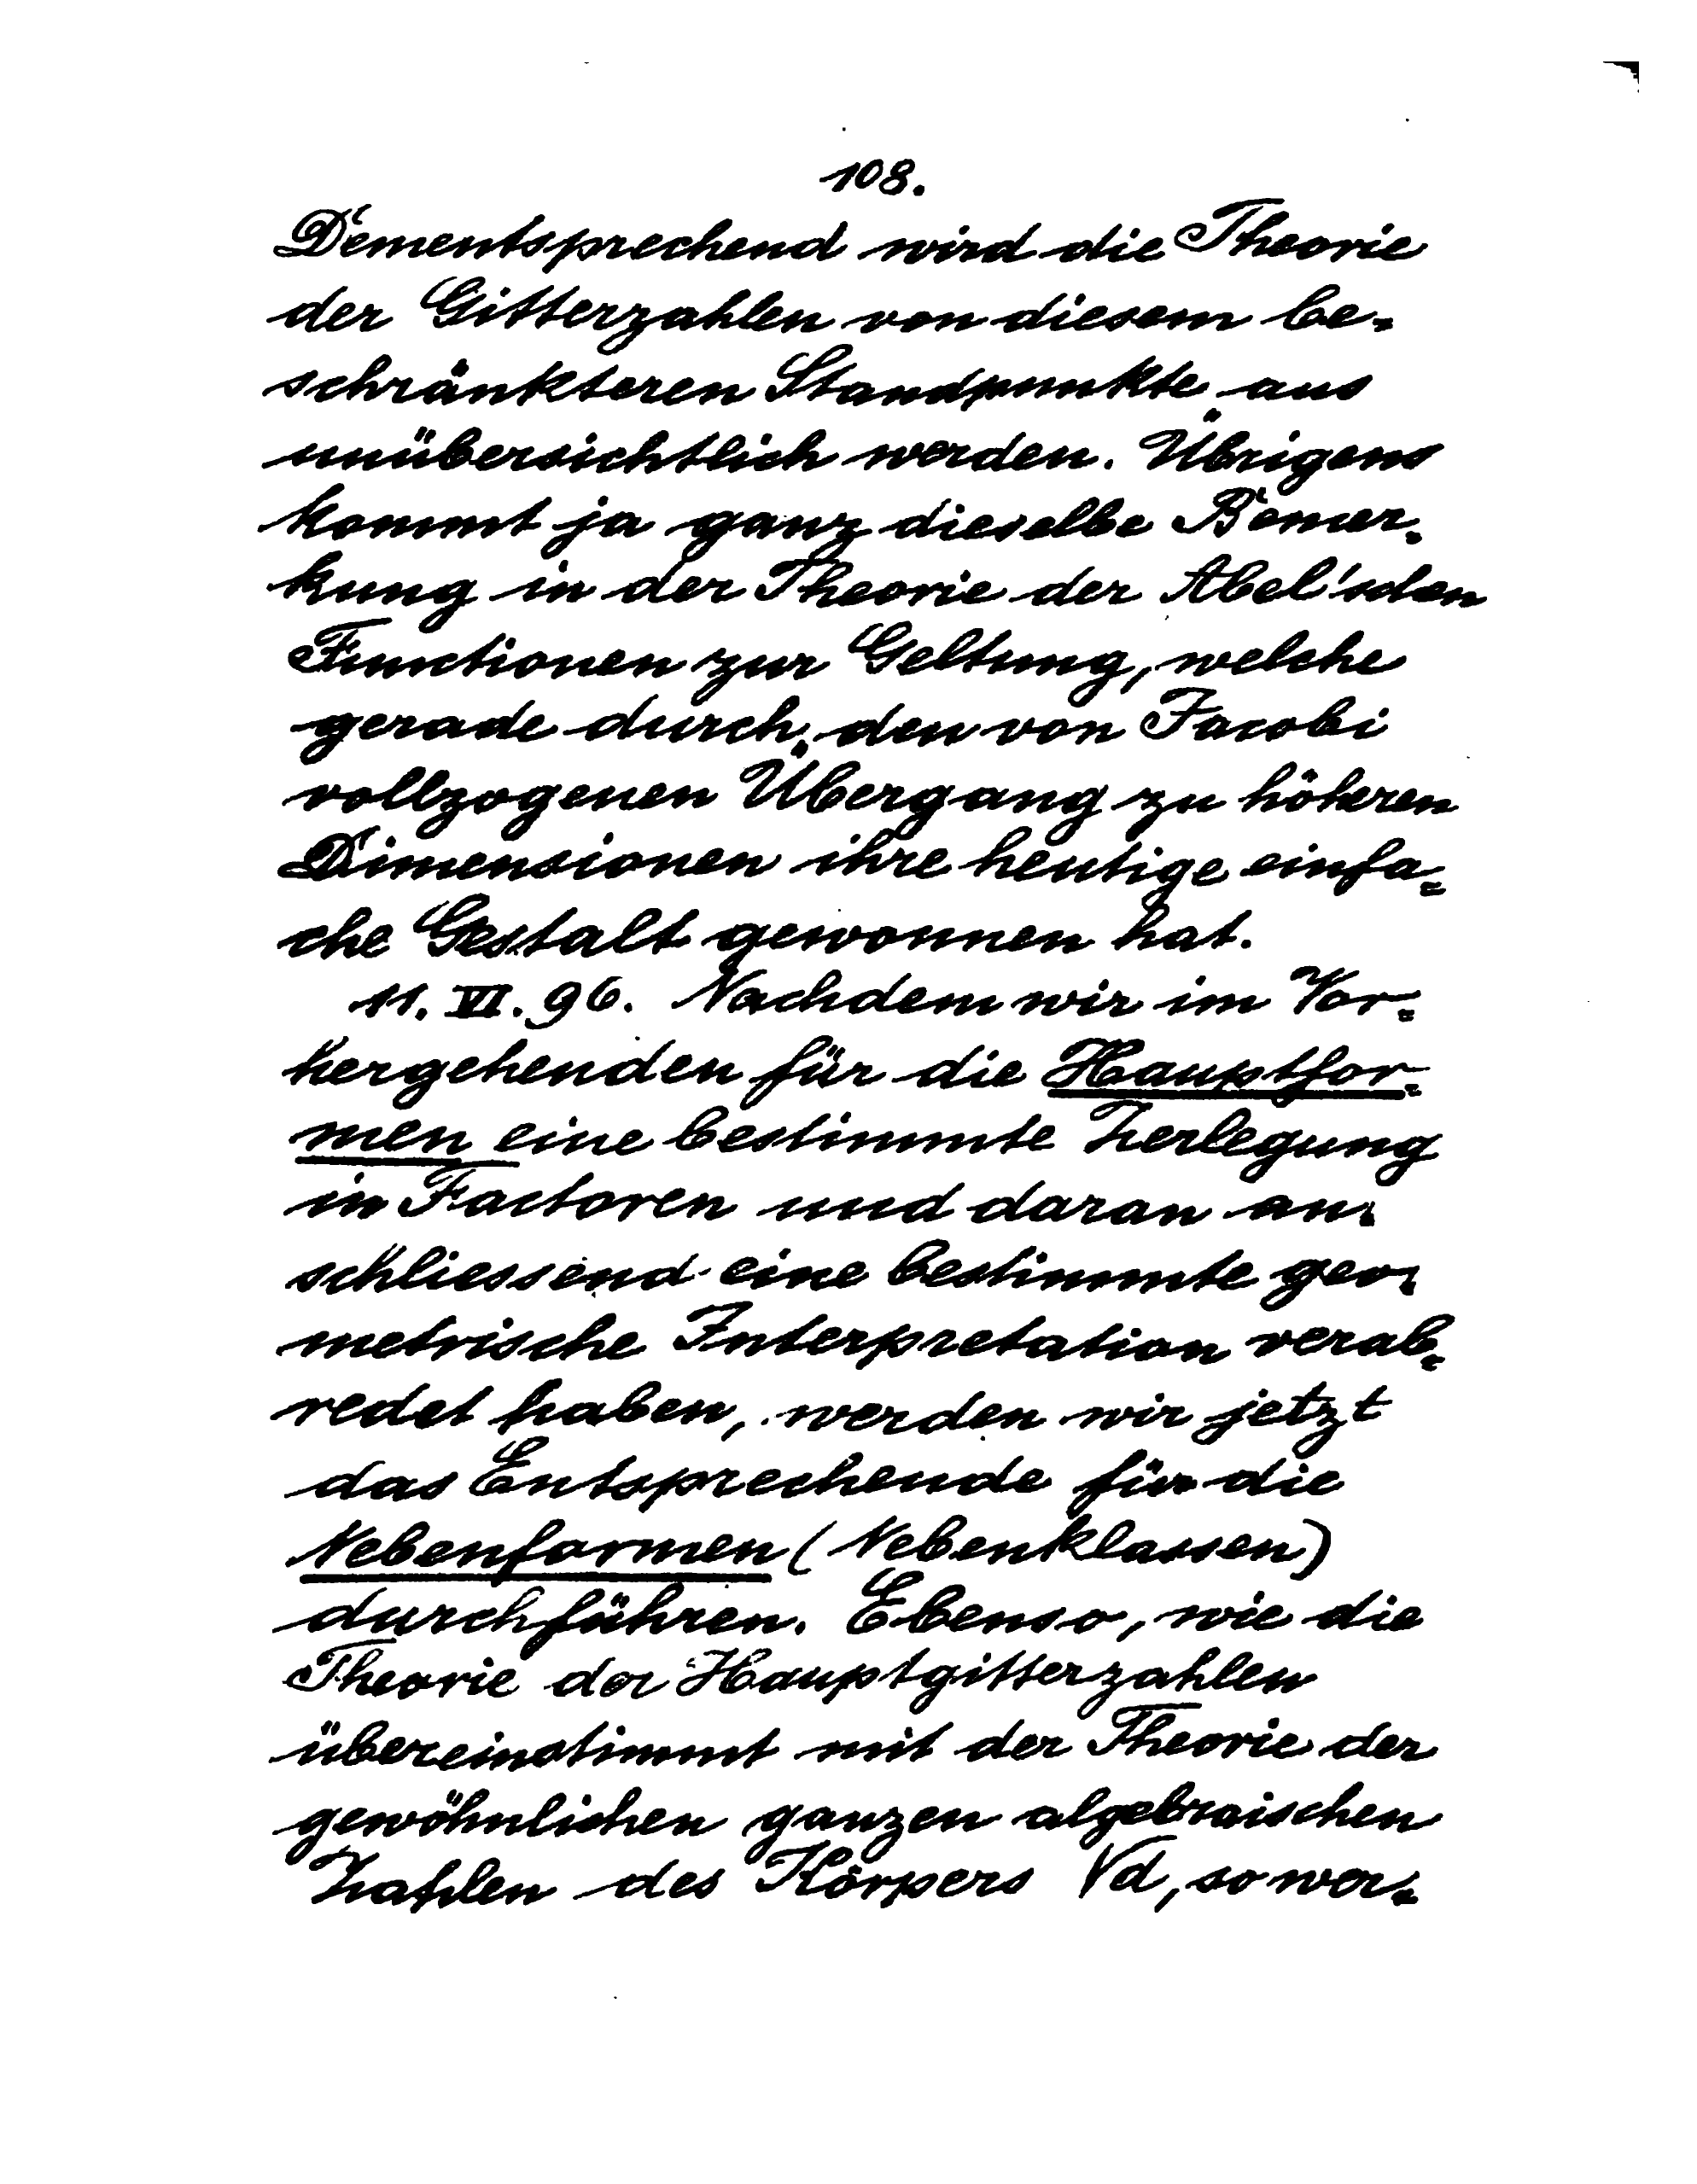 108.
Dementsprechend wird die Theorie
der Gitterzahlen von diesem be-
schränkteren Standpunkte aus
unübersichtlich werden. Übrigens
kommt ja ganz dieselbe Bemer-
kung in der Theorie der Abel'schen
Functionen zur Geltung, welche
gerade durch den von Jacobi
vollzogenen Übergang zu höheren
Dimensionen ihre heutige einfa=
che Gestalt gewonnen hat.
11. VI. 96. Nachdem wir im Vor=
hergehenden für die Hauptfor=
men eine bestimmte Zerlegung
in Factoren und daran an-
schliessend eine bestimmte geo-
metrische Interpretation verab=
redet haben, werden wir jetzt
das Entsprechende für die
Nebenformen (Nebenklassen)
durchführen. Ebenso, wie die
Theorie der Hauptgitterzahlen
übereinstimmt mit der Theorie der
gewöhnlichen ganzen algebraischen
Zahlen des Körpers √d, so wer=